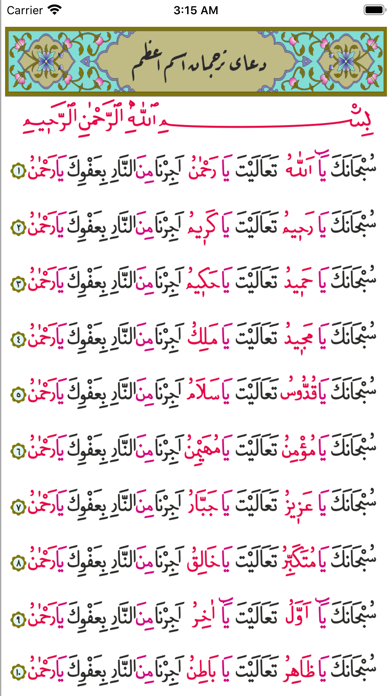 Carrier 3:15 AM
دعای ترجمان اسم اعظم
بِسْمِ اللهِ الرَّحْمٰنِ الرَّحِيمِ
سُبْحَانَكَ يَا اَللهُ تَعَالَيْتَ يَا رَحْمٰنُ اَجِرْنَا مِنَ النَّارِ بِعَفْوِكَ يَا رَحْمٰنُ ١
سُبْحَانَكَ يَا رَحِيمُ تَعَالَيْتَ يَا كَرِيمُ اَجِرْنَا مِنَ النَّارِ بِعَفْوِكَ يَا رَحْمٰنُ ٢
سُبْحَانَكَ يَا حَمِيدُ تَعَالَيْتَ يَا حَكِيمُ اَجِرْنَا مِنَ النَّارِ بِعَفْوِكَ يَا رَحْمٰنُ ٣
سُبْحَانَكَ يَا مَجِيدُ تَعَالَيْتَ يَا مَلِكُ اَجِرْنَا مِنَ النَّارِ بِعَفْوِكَ يَا رَحْمٰنُ ٤
سُبْحَانَكَ يَا قُدُّوسُ تَعَالَيْتَ يَا سَلَامُ اَجِرْنَا مِنَ النَّارِ بِعَفْوِكَ يَا رَحْمٰنُ ٥
سُبْحَانَكَ يَا مُؤْمِنُ تَعَالَيْتَ يَا مُهَيْمِنُ اَجِرْنَا مِنَ النَّارِ بِعَفْوِكَ يَا رَحْمٰنُ ٦
سُبْحَانَكَ يَا عَزِيزُ تَعَالَيْتَ يَا جَبَّارُ اَجِرْنَا مِنَ النَّارِ بِعَفْوِكَ يَا رَحْمٰنُ ٧
سُبْحَانَكَ يَا مُتَكَبِّرُ تَعَالَيْتَ يَا خَالِقُ اَجِرْنَا مِنَ النَّارِ بِعَفْوِكَ يَا رَحْمٰنُ ٨
سُبْحَانَكَ يَا اَوَّلُ تَعَالَيْتَ يَا اٰخِرُ اَجِرْنَا مِنَ النَّارِ بِعَفْوِكَ يَا رَحْمٰنُ ٩
سُبْحَانَكَ يَا ظَاهِرُ تَعَالَيْتَ يَا بَاطِنُ اَجِرْنَا مِنَ النَّارِ بِعَفْوِكَ يَا رَحْمٰنُ ١٠